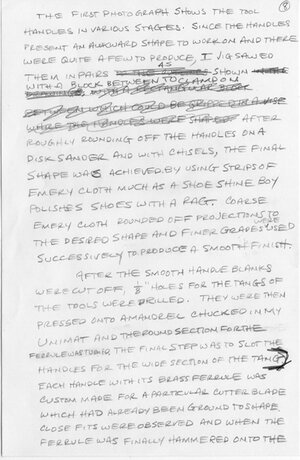 8
THE FIRST PHOTOGRAPH SHOWS THE TOOL
HANDLES IN VARIOUS STAGES. SINCE THE HANDLES
PRESENT AN AWKWARD SHAPE TO WORK ON AND THERE
WERE QUITE A FEW TO PRODUCE, I JIGSAWED
THEM IN PAIRS AS SHOWN
WITH A BLOCK BETWEEN TO CLAMP ON
BETWEEN WHICH COULD BE GRIPPED IN A VISE
WHILE THE HANDLES WERE SHAPED AFTER
ROUGHLY ROUNDING OFF THE HANDLES ON A
DISK SANDER AND WITH CHISELS, THE FINAL
SHAPE WAS ACHIEVED BY USING STRIPS OF
EMERY CLOTH MUCH AS A SHOE SHINE BOY
POLISHES SHOES WITH A RAG. COARSE
EMERY CLOTH ROUNDED OFF PROJECTIONS TO
THE DESIRED SHAPE AND FINER GRADES WERE USED
SUCCESSIVELY TO PRODUCE A SMOOTH FINISH.
AFTER THE SMOOTH HANDLE BLANKS
WERE CUT OFF, 1/8" HOLES FOR THE TANGS OF
THE TOOLS WERE DRILLED. THEY WERE THEN
PRESSED ONTO A MANDREL CHUCKED IN MY
UNIMAT AND THE ROUND SECTION FOR THE
FERRULE WAS TURNED. THE FINAL STEP WAS TO SLOT THE
HANDLES FOR THE WIDE SECTION OF THE TANG
EACH HANDLE WITH ITS BRASS FERRULE WAS
CUSTOM MADE FOR A PARTICULAR CUTTER BLADE
WHICH HAD ALREADY BEEN GROUND TO SHAPE
CLOSE FITS WERE OBSERVED AND WHEN THE
FERRULE WAS FINALLY HAMMERED ONTO THE